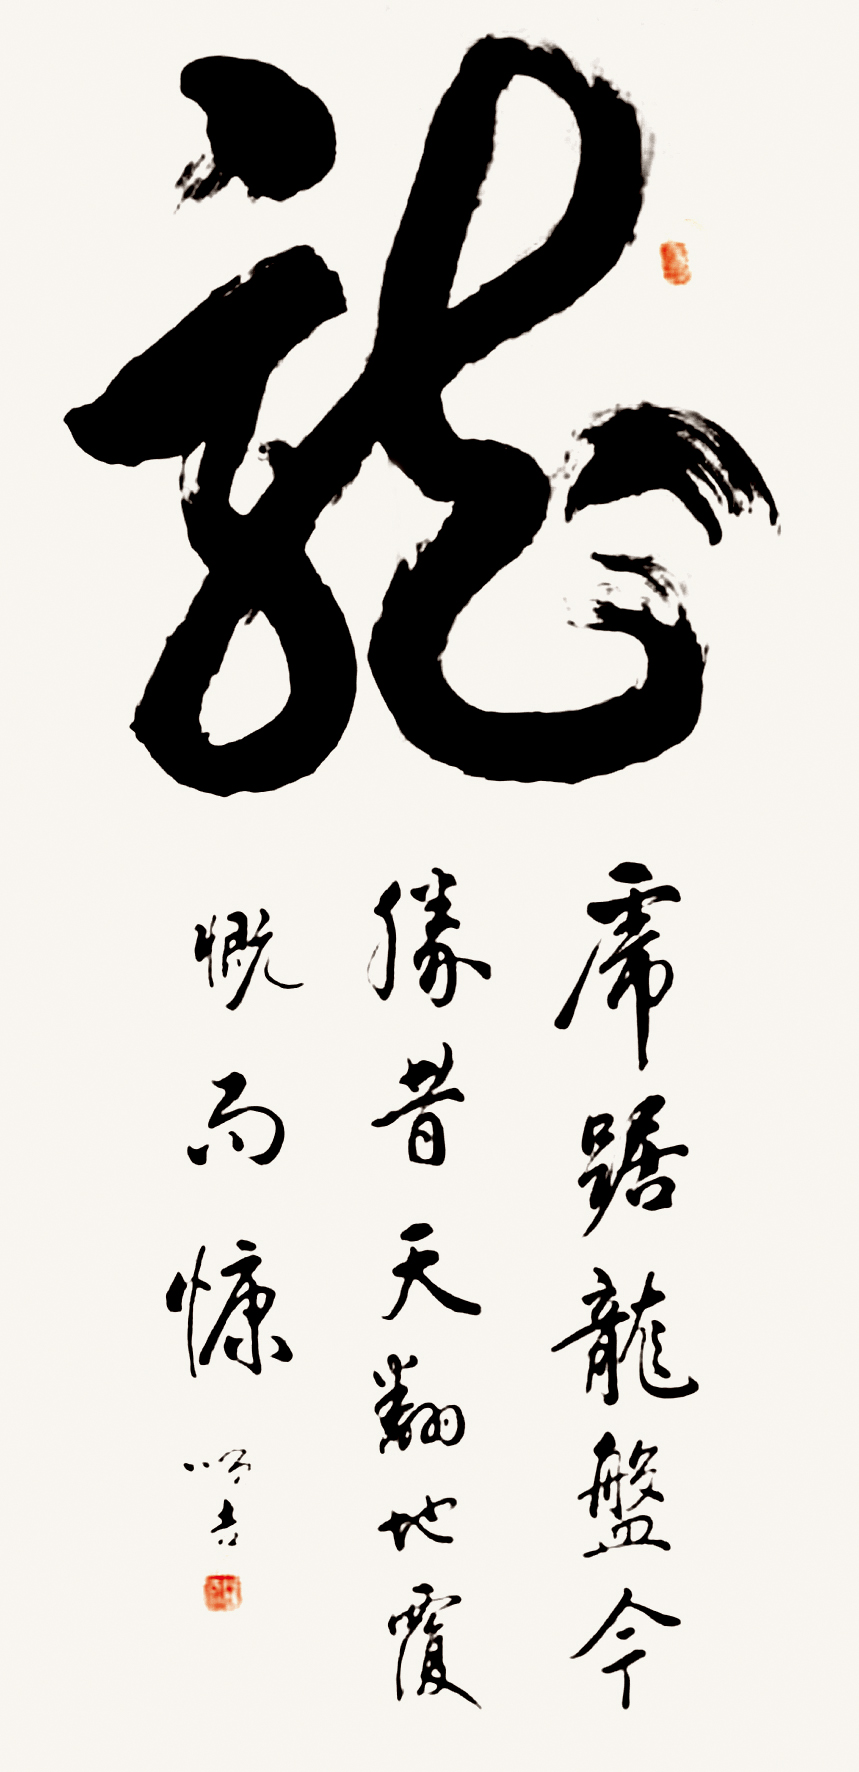 龍
虎踞龍盤今
勝昔天翻地覆
慨而慷